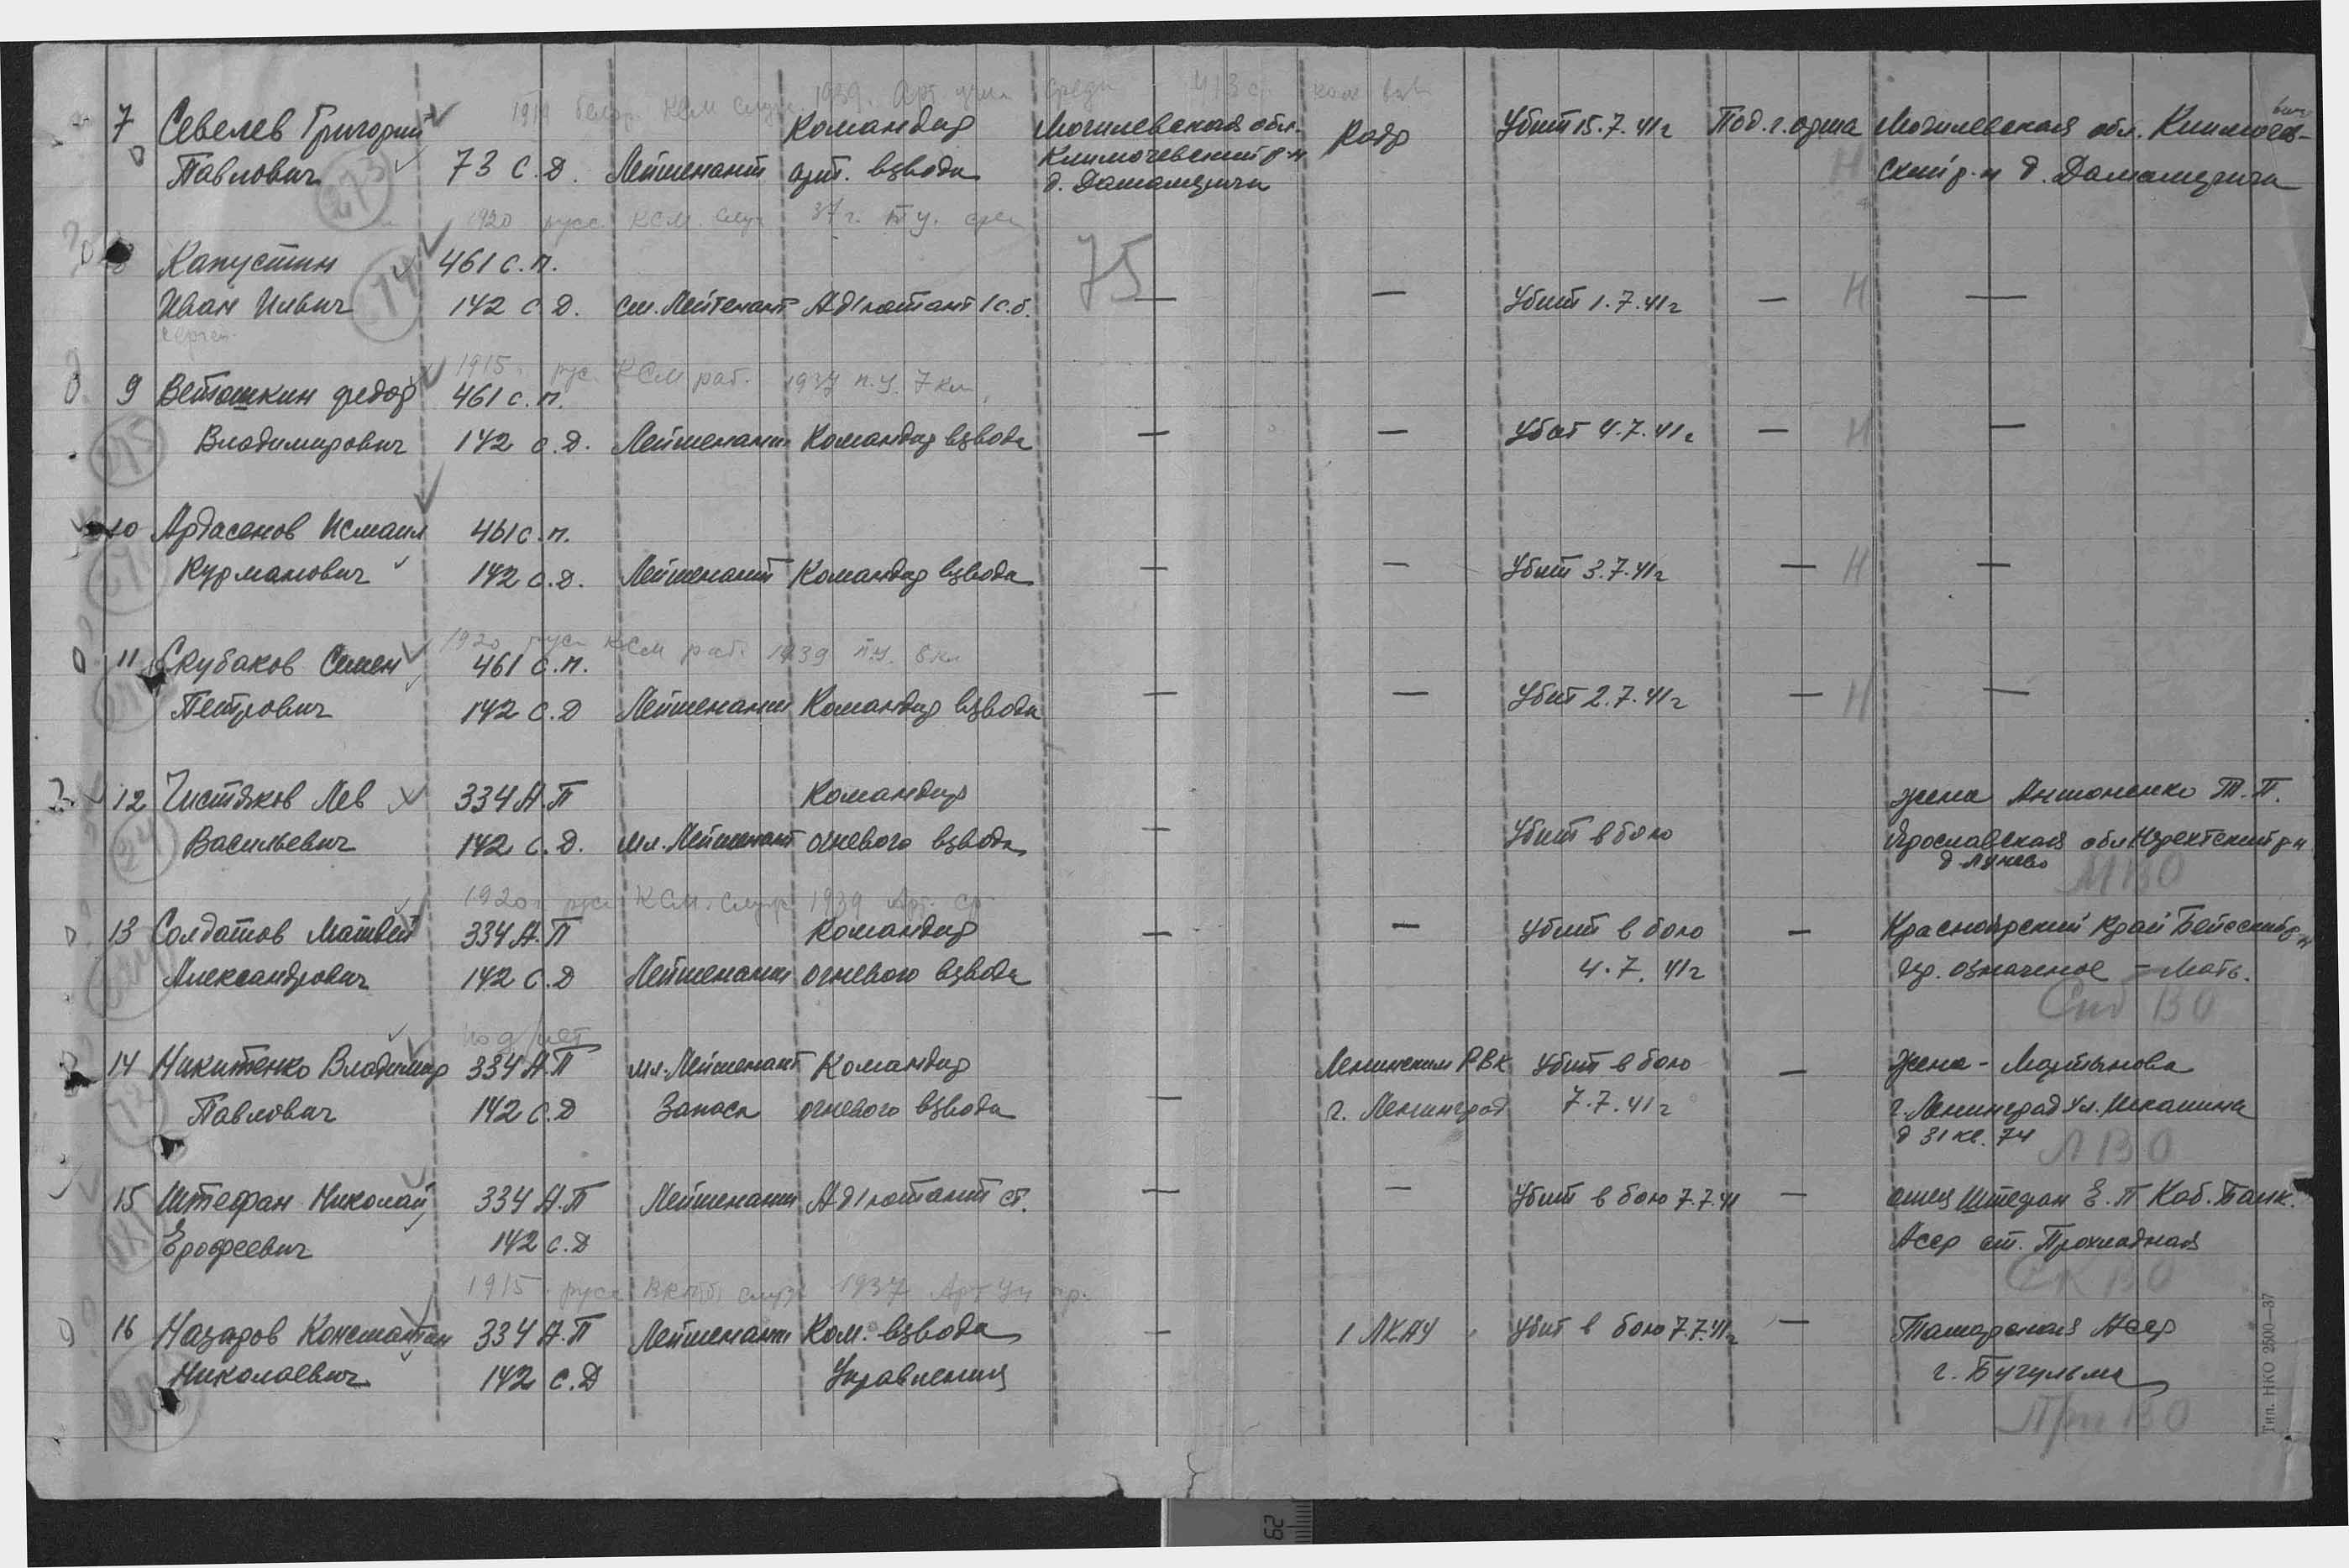 7 Севелев Григорий Командир Могилевская обл. Кадр Убит 15.7.41г Под. г. Орша Могилевская обл. Климочев-
Павлович 73 С.Д. Лейтенант арт. взвода Климочевский р-н ский р-н д. Дамамеричи
д. Дамамеричи
273
1920 русс. КСМ. служ 37г.
Капустин 461 с.п. 75
Иван Ильич 142 С.Д. см. Лейтенант Адъютант 1 с.б. — — Убит 1.7.41г — Н —
1915 рус. КСМ раб. 1937 п.у. 7 кл
9 Ветошкин Федор 461 с.п.
Владимирович 142 С.Д. Лейтенант Командир взвода — — Убит 4.7.41г — Н —
10 Ардасенов Исмаил 461 с.п.
Курманович 142 С.Д. Лейтенант Командир взвода — — Убит 3.7.41г — Н —
1920 русс КСМ раб. 1939 п.у. 8 кл
11 Скубаков Семен 461 с.п.
Петрович 142 С.Д Лейтенант Командир взвода — — Убит 2.7.41г — Н —
12 Чистяков Лев 334 А.П Командир жена Антоненко Т.П.
Васильевич 142 С.Д. мл. Лейтенант огневого взвода — Убит в бою Ярославская обл. Нерехтский р-н
д Лунево
МВО
1920 русс КСМ. служ 1939 Арт. ср
13 Солдатов Матвей 334 А.П Командир — — Убит в бою — Красноярский край Бейский р-н
Александрович 142 С.Д Лейтенант огневого взвода 4.7.41г гр. означеное — Мать.
Сиб ВО
14 Никитенко Владимир 334 А.П мл. Лейтенант Командир Ленинским РВК Убит в бою — жена - Мартынова
Павлович 142 С.Д Запаса огневого взвода — г. Ленинград 7.7.41г г. Ленинград ул.
д 31 кв. 74
ЛВО
15 Штефан Николай 334 А.П Лейтенант Адъютант ст. — — Убит в бою 7.7.41 — отец Штефан Е.П Каб. Балк.
Ерофеевич 142 С.Д Асср ст. Прохладная
СКВО
1915 русс ВКПб служ 1937 Арт уч
16 Назаров Константин 334 А.П Лейтенант Ком. взвода — 1 ЛКАУ Убит в бою 7.7.41г — Татарская Асср
Николаевич 142 С.Д Управления г. Бугульма
При ВО
Тип. НКО 2500—37
62